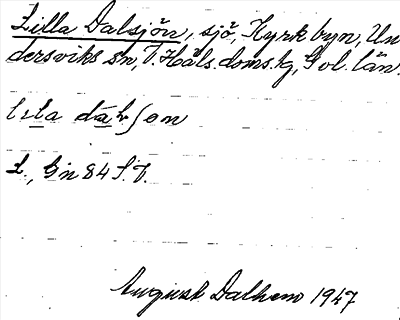 Lilla Dalsjön, sjö, Kyrkbyn, Un
dersviks sn, V. Häls. doms. hg, Gvl. län.
lila dāₕʃøn
L., Gin 84 S.V.
August Dalhem 1947